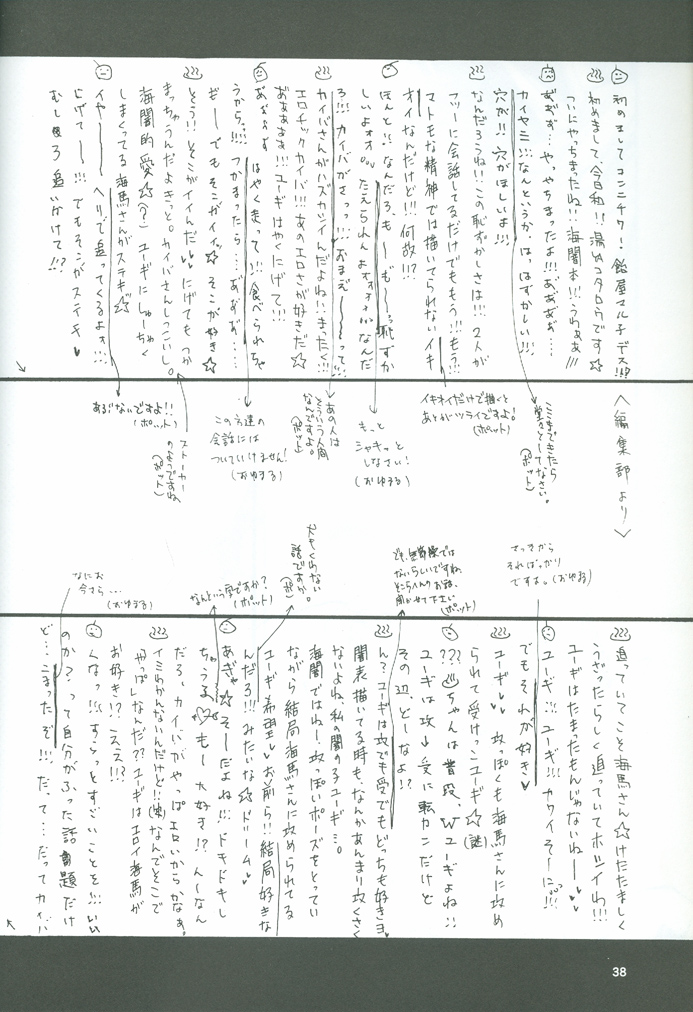 初めましてコンニチワ!飴屋マルチデス!!!?
初めまして、今日和!!湯山コタロウです☆
ついにやっちまったね!!!海闇本!!!うわぁぁ!!!
あ゛あ゛あ゛…やっちまったよ!!!あ゛あ゛あ゛あ゛…
カイヤミ!!!なんというか、はっはずかしい!!!
穴が!!!穴がほしいよ!!!
なんだろうね!!!この恥ずかしさは!!!2人が
フツーに会話してるだけでももう!!!もう!!!
マトモな精神では描いてられないイキ
オイなんだけど!!!何故!!!?
ほんと!!なんだろ、もーもーっ恥ずか
しいよォォ。たえられんよォォォ!!!なんだ
ろ!!!カイバがさっっ!!!おまえ〜〜って!!!
カイバさんがハズカシイんだよね!!!まったく!!!
エロチックカイバ!!!あのエロさが好きだ☆
あぁぁぁぁ!!!ユーギはやくにげて!!!
はやく走って!!食べられちゃ
うから…!!!つかまったら…あ゛あ゛あ゛…
ぎーでもそこがイイ☆そこが好き☆
とう!!そこがイイんだ♥♥にげてもつか
まっちゃうんだよきっと。カイバさんしつこいし。
海闇的愛☆(?)ユーギにしゅーちゃく
しまくってる海馬さんがステキ☆
イヤーーヘリで追ってくるよォ!!!
にげてー!!!でもそこがステキ♥
むしろ追いかけて!!?
〈編集部より〉
ここまできたら
堂々としてなさい。
(ポット)
イキオイだけで描くと
あとがツライですよ!
(ポット)
もっと
シャキッと
しなさい!
(おゆまる)
あの人は
そういう人間
なんですよ。
(ポット)
この方達の
会話には
ついていけません!
(おゆまる)
ストーカーの
ようですね
(ポット)
あぶないですよ!!
(ポット)
さっきから
そればっかり
ですよ。(おゆまる)
(ポット)
スキくわない
話ですか。
なんという字ですか?
(ポット)
なにお
今さら…
(おゆまる)
追っていてこそ海馬さん☆けたたましく
うざったらしく追っていてホシイわ!!!
ユーギはたまったもんじゃないねー♥♥
ユーギ!!!ユーギ!!!カワイそーにっ!!!
でもそれが好き♥
ユーギ♥♥攻っぽくも海馬さんに攻め
られて受けっこユーギ☆(謎)
???♨ちゃんは普段、Wユーギよね!!
ユーギは攻→受に転カンだけど
その辺、どーなよ!?
ん?ユーギは攻でも受でもどっちも好きヨ♥
闇表描いてる時も、なんかあんまり攻くさく
ないよね、私の闇の子ユーギ…。
海闇ではねー、攻っぽいポーズをとってい
ながら結局海馬さんに攻められてる
ユーギ希望♥お前ら!!結局好きな
んだろ!!!みたいな☆ドリーム♥
あぎゃ☆そーだよね!!!ドキドキし
ちゃうる♥もー大好き!?んーなん
だろ、カイバがやっぱエロいからかなぁ。
イミわかんないんだけど!!(笑)なんでそこで
やっぱしなんだ??ユーギはエロイ海馬が
お好き!?ええ!!?
くなっ!!!すらっとすごいことを!!!いい
のか?って自分がふった話題だけ
ど…こまったぞ!!!だって…だってカイバ
38